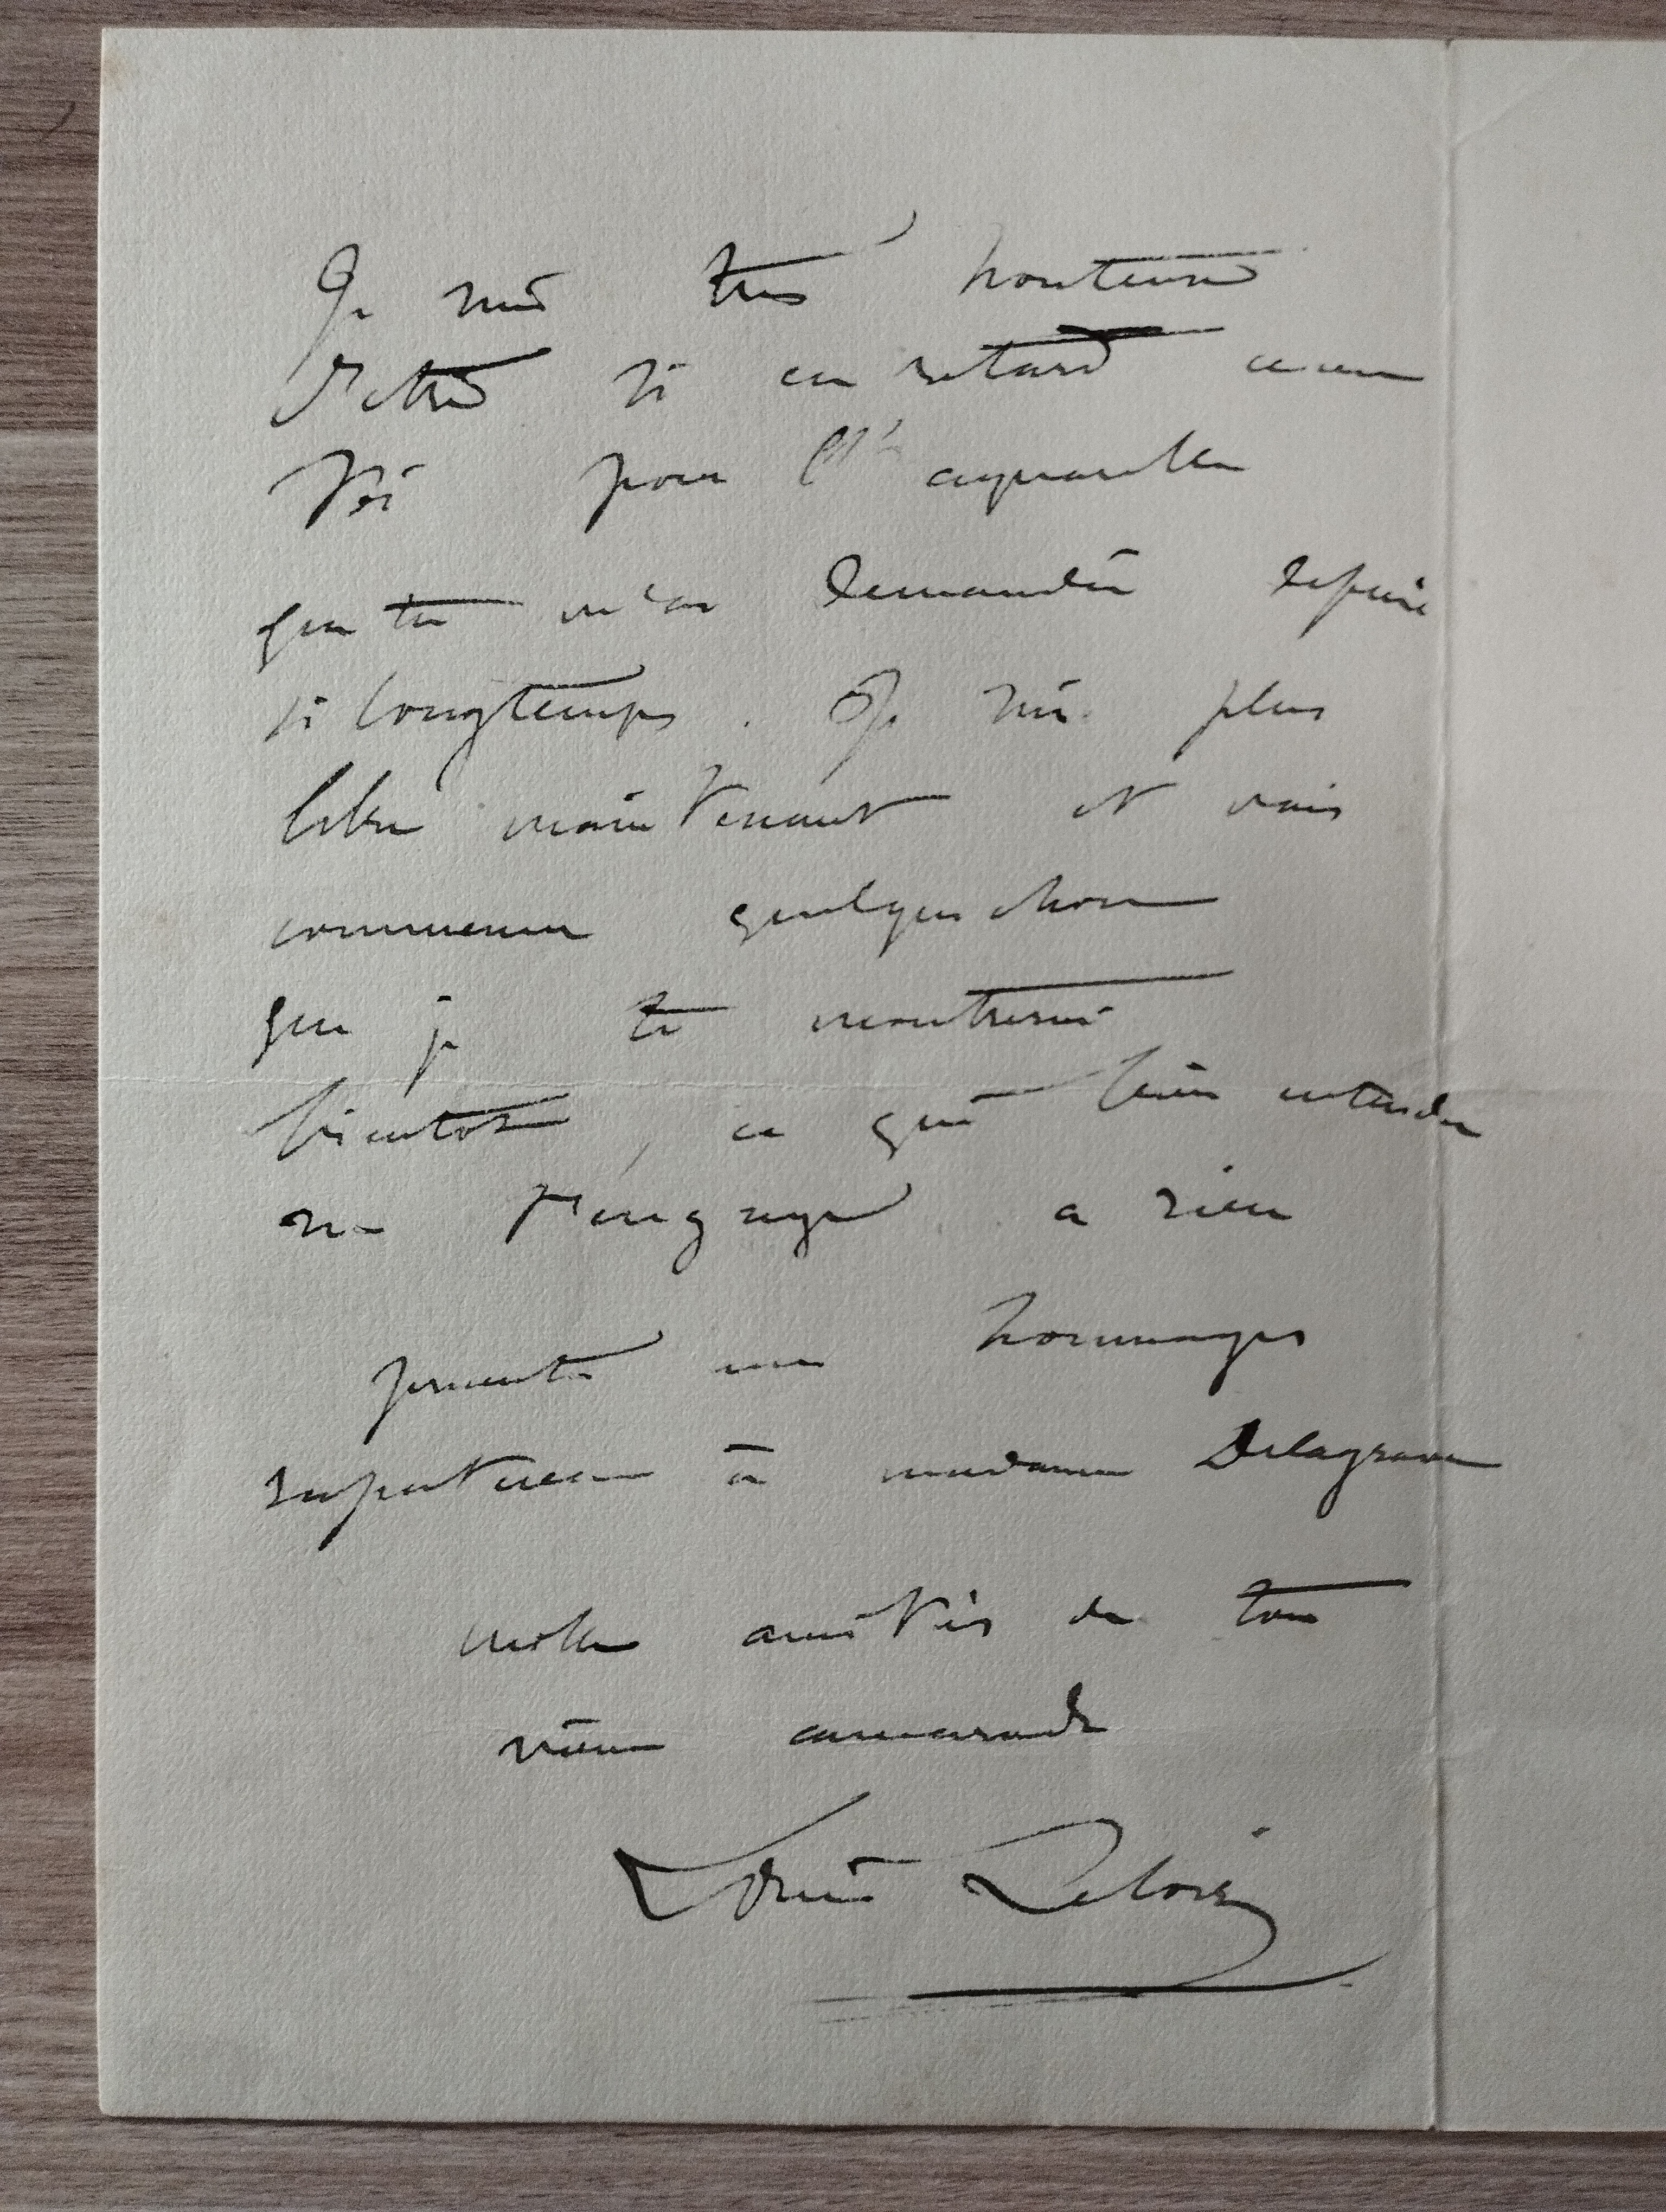 Je suis très honteux
d'être si en retard avec
toi pour l'aquarelle
que tu m'as demandée depuis
si longtemps. Je suis plus
libre maintenant et vais
commencer quelque chose
que je te montrerai
bientôt, ce qui bien entendu
ne t'engage a rien
présente mes hommages
respectueux à madame Delagrave
mille amitiés de ton
vieux camarade
Louis Leloir